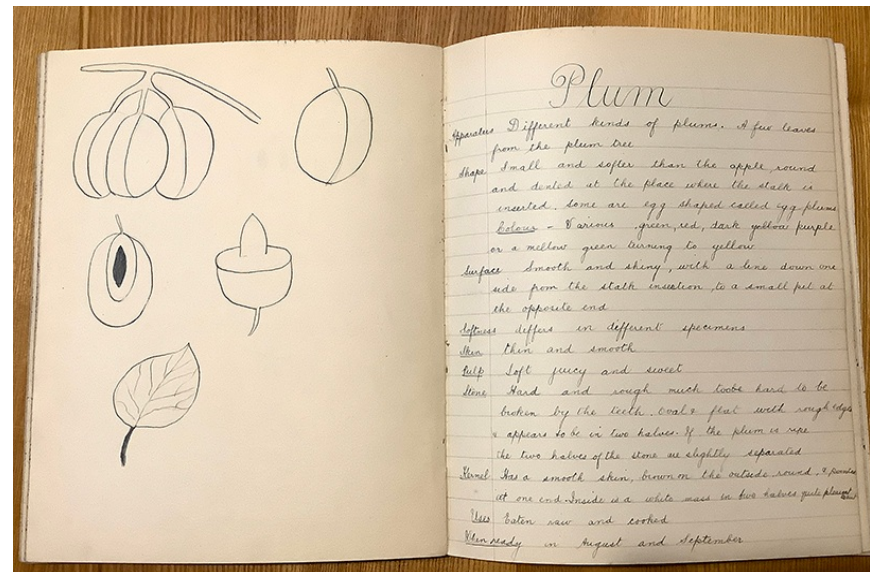 Plum
Apparatus Different kinds of plums. A few leaves
from the plum tree
Shape Small and softer than the apple, round
and dented at the place where the stalk is
inserted. Some are egg shaped called egg plums
Colour - Various, green, red, dark yellow purple
or a mellow green turning to yellow
Surface Smooth and shiny, with a line down one
side from the stalk insection, to a small pit at
the opposite end
Softness differs in different specimens
Skin thin and smooth
Pulp Soft juicy and sweet
Stone Hard and rough much too hard to be
broken by the teeth. Oval & flat with rough edges
& appears to be in two halves. If the plum is ripe
the two halves of the stone are slightly separated
Kernel Has a smooth skin, brown on the outside round, &
at one end. Inside is a white mass in two halves quite pleasant
Uses Eaten raw and cooked
When ready in August and September